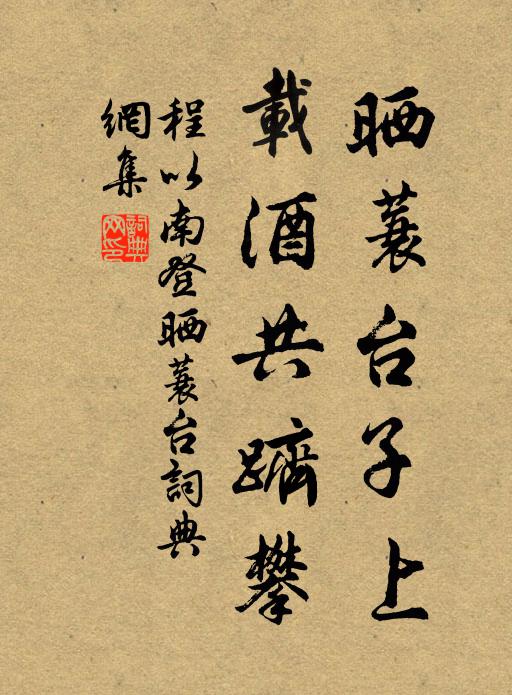 晒蓑台子上
載酒共躋攀
程以南登晒蓑台詞典
網集
詞典
网印